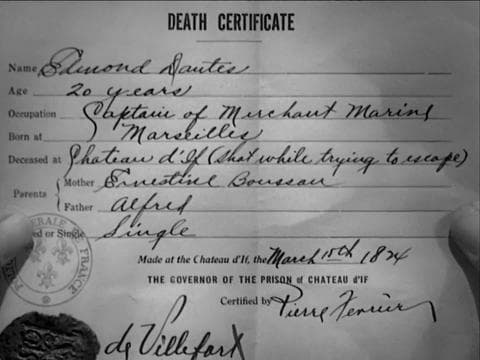 DEATH CERTIFICATE
Name Edmond Dantes
Age 20 years
Occupation Captain of Merchant Marine
Born at Marseilles
Deceased at Chateau d'If (shot while trying to escape)
Parents Mother Ernestine Boussau
Father Alfred
ed or Single Single
Made at the Chateau d'If, the March 15th 1824
THE GOVERNOR OF THE PRISON of CHATEAU d'IF
Certified by Pierre Ferrier
de Villefort
FRANCE